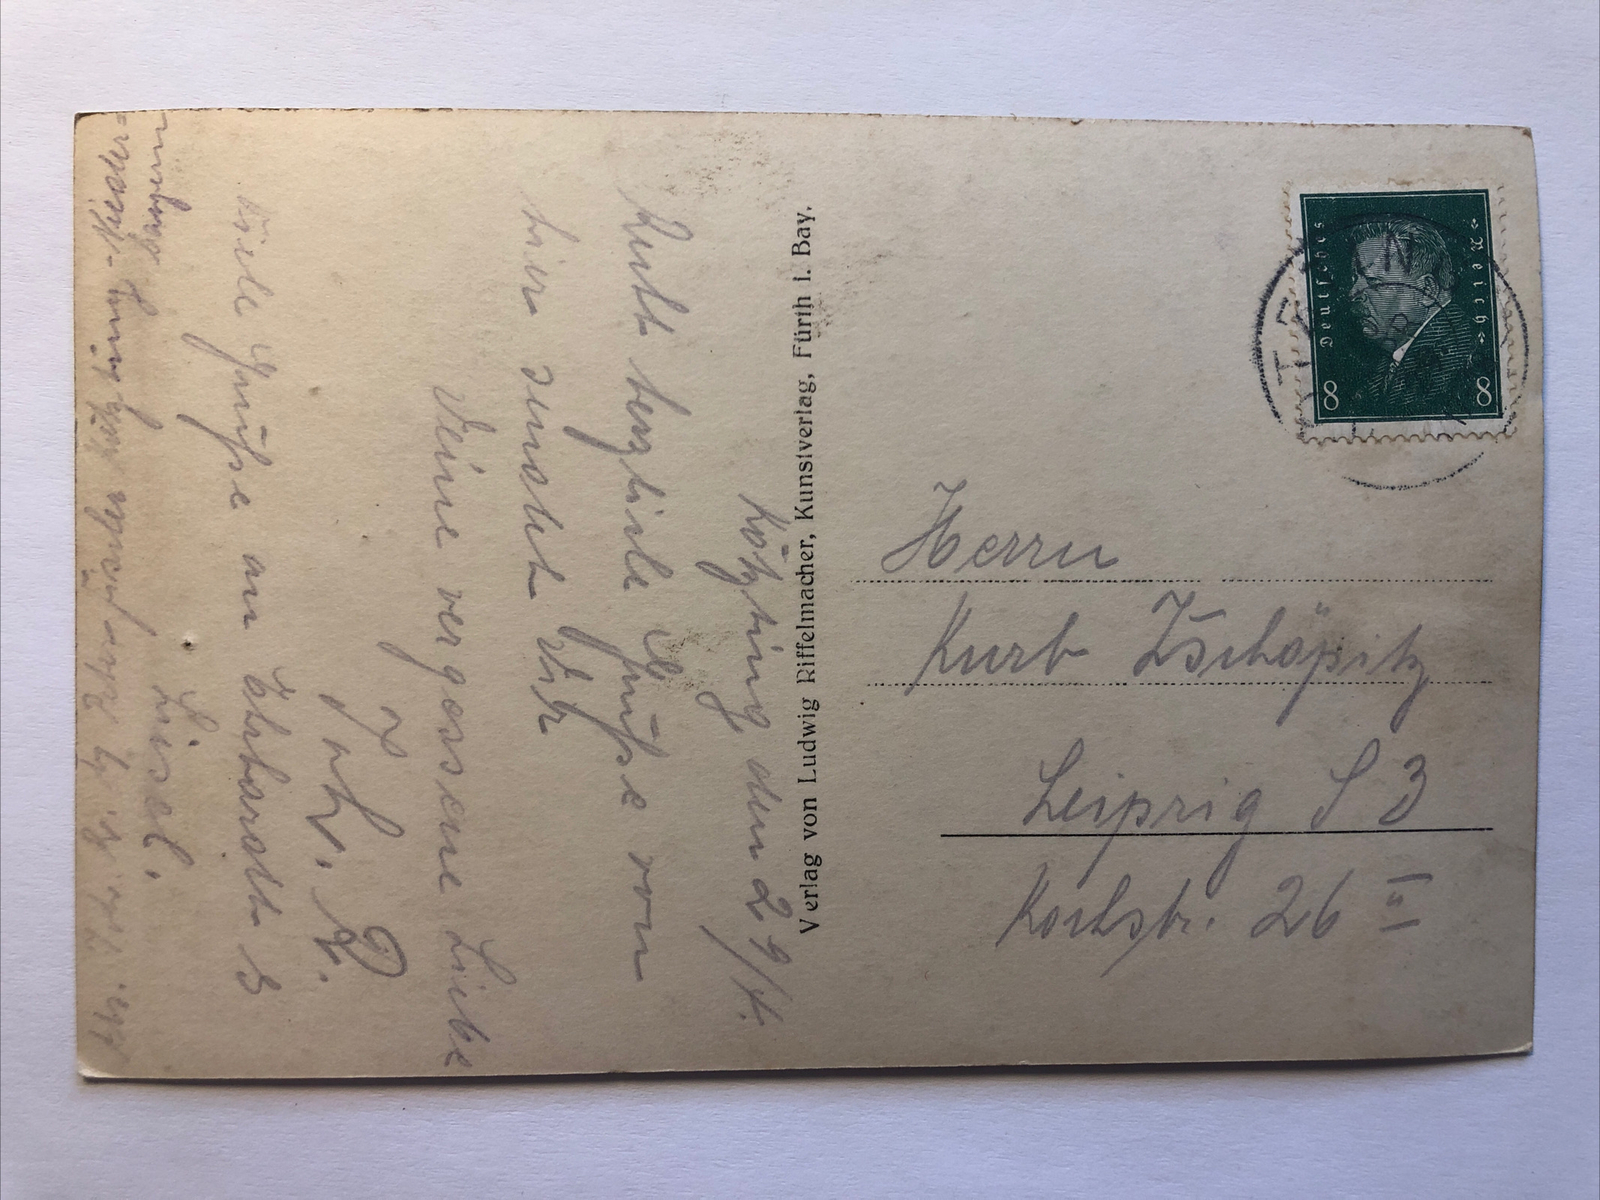 Kötzting den 29/4.
Recht herzliche Grüße von
hier sendet Dir
Deine vergessene Liebe
Viele Grüße an Eberhardt
Liesel.
Kötzting - Nieder=
bayern
Verlag von Ludwig Riffelmacher, Kunstverlag, Fürth i. Bay.
Deutsches Reich
8 8
Herrn
Kurt Zschäpitz
Leipzig S 3
Kochstr. 26 II